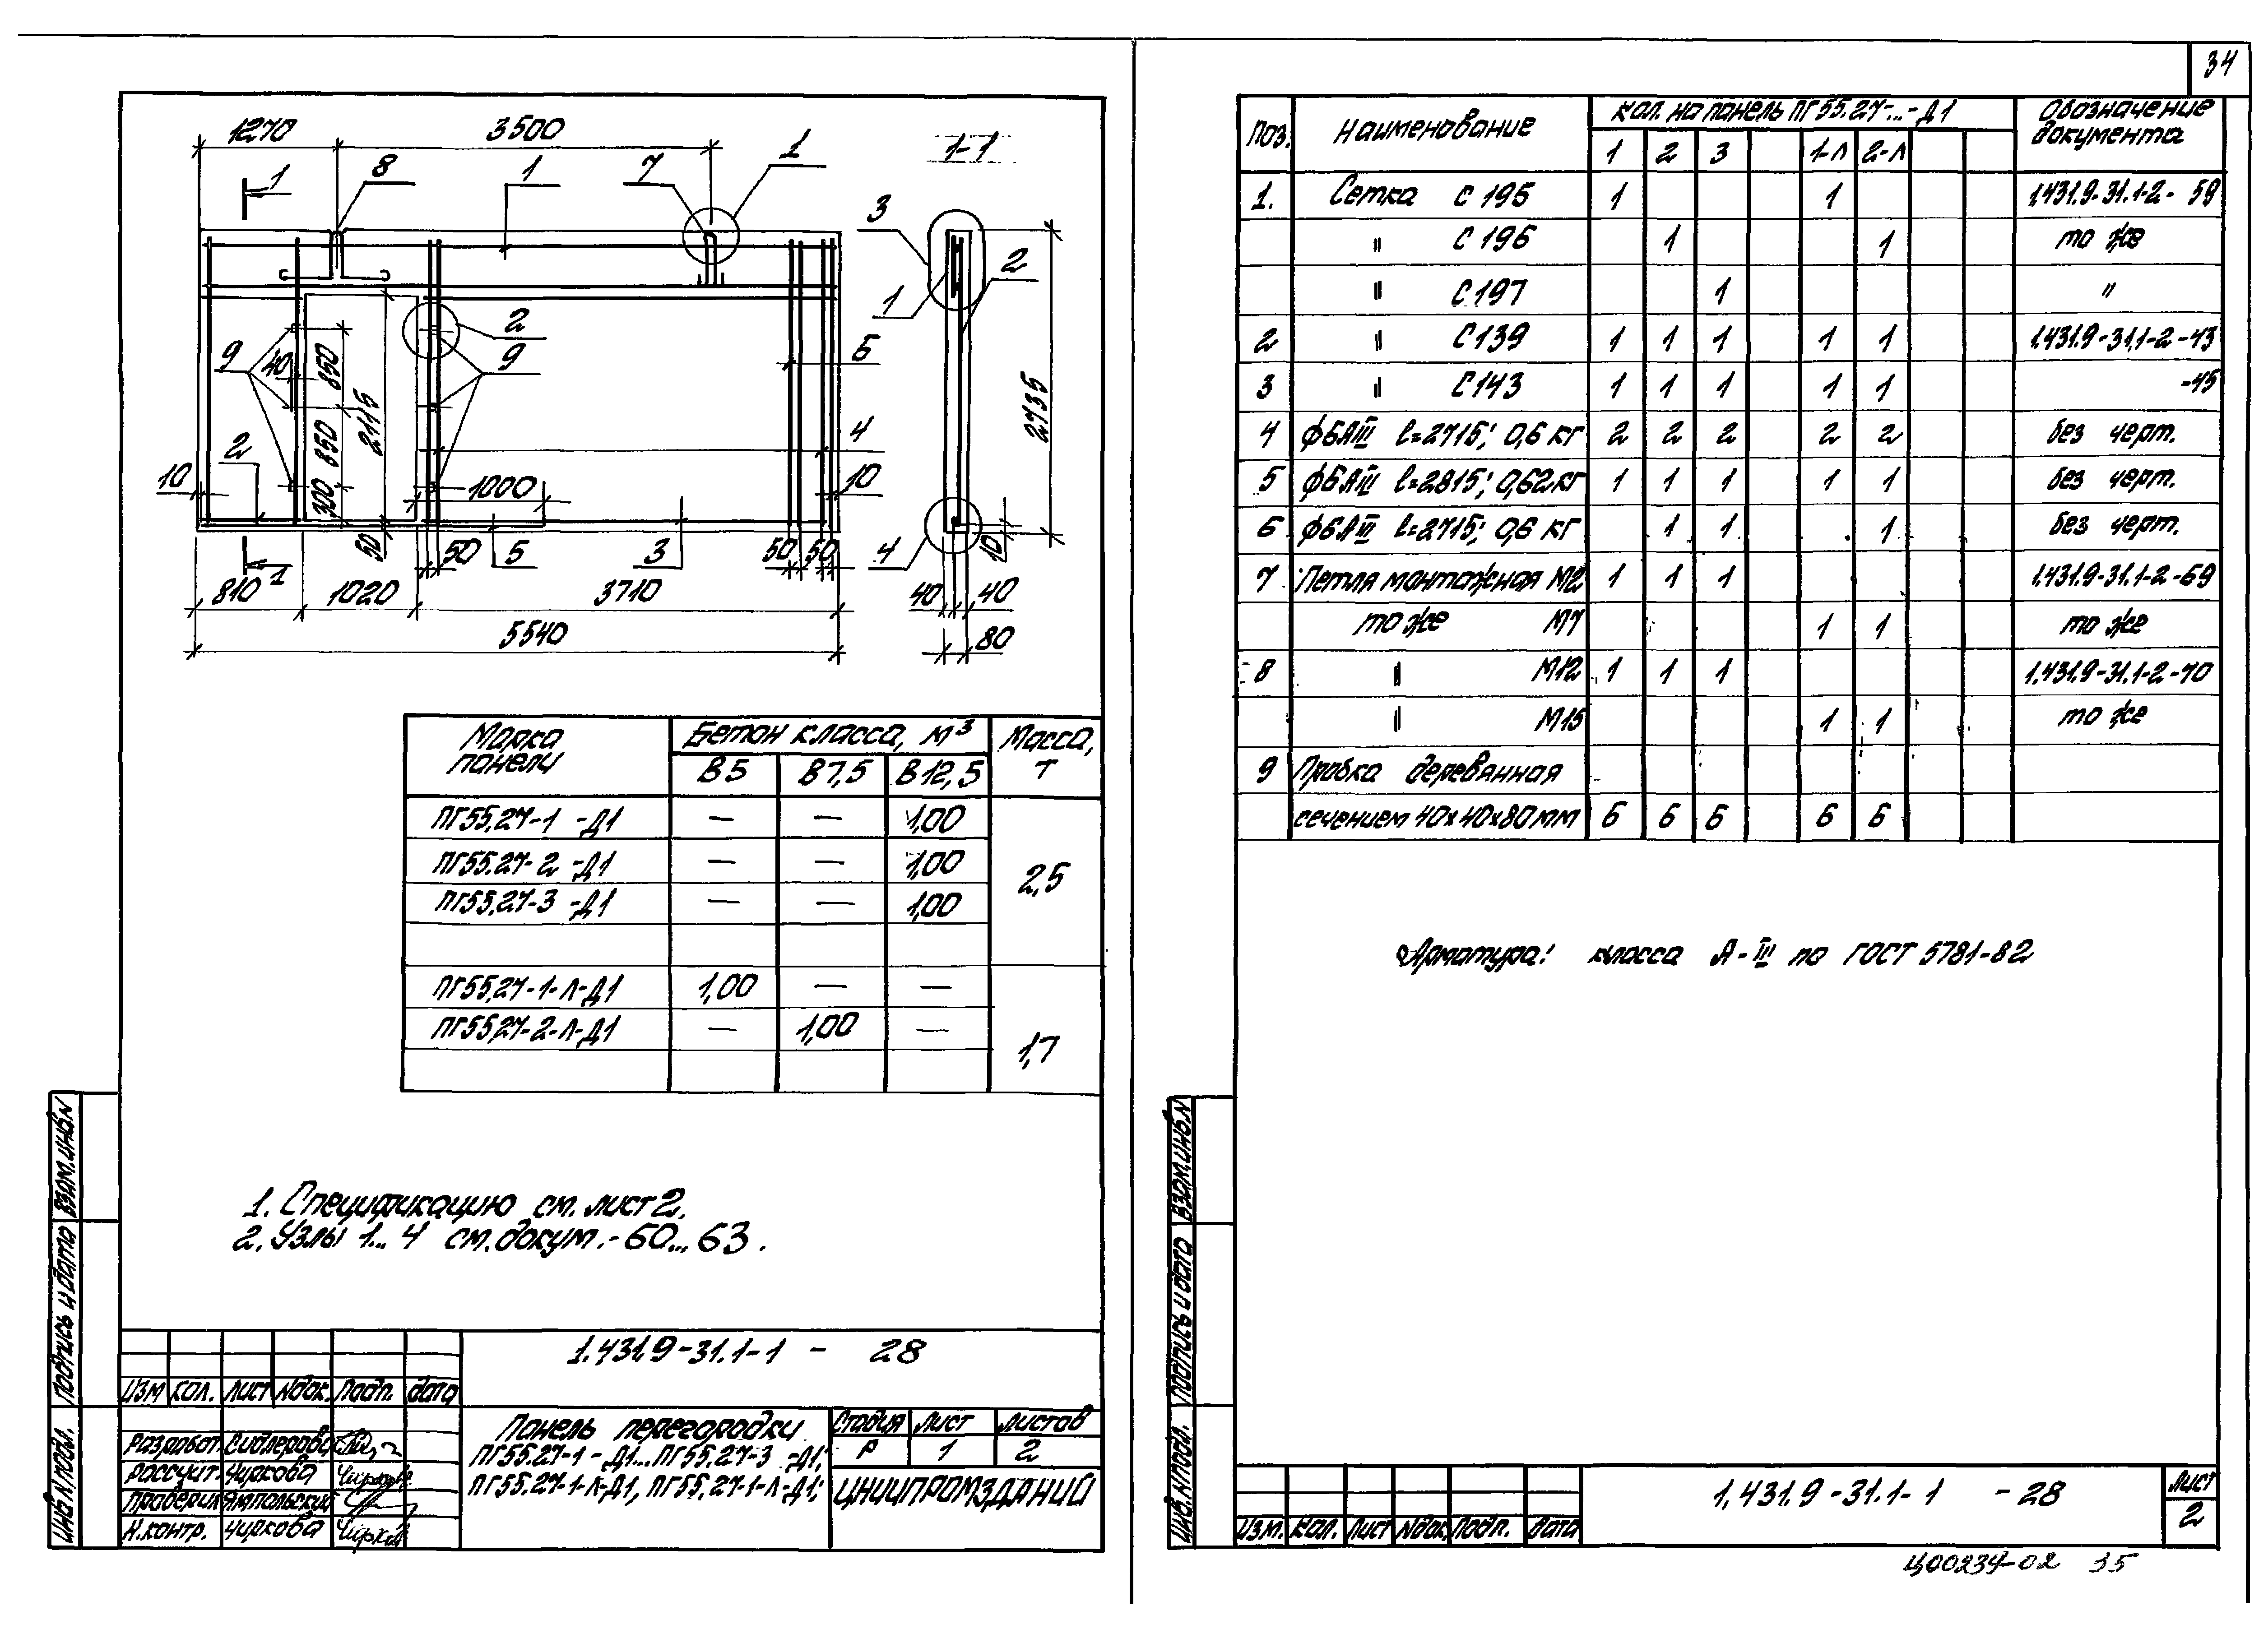 34
1270 3500
1 8 1 7 1 1-1
3 2
1
9 40 850 2 9 6
2115 2735
2 850 4
10 300 1000 10
50 50 5 3 50 50 4 10
1
810 1020 3710 40 40
5540 80
Марка панели Бетон класса, м³ Масса, т
В5 В7,5 В12,5
ПГ55.27-1 -Д1 — — 1,00
ПГ55.27-2 -Д1 — — 1,00 2,5
ПГ55.27-3 -Д1 — — 1,00
ПГ55.27-1-Л-Д1 1,00 — —
ПГ55.27-2-Л-Д1 — 1,00 — 1,7
1. Спецификацию см. лист 2.
2. Узлы 1... 4 см. докум. - 60... 63.
1.431.9-31.1-1 - 28
Изм Кол. Лист Nдок. Подп. Дата
Разработ. Сидлерова
Рассчит. Чиркова
Проверил Ямпольский
Н.контр. Чиркова
Панель перегородки
ПГ55.27-1 - Д1...ПГ55.27-3 -Д1;
ПГ55.27-1-Л-Д1, ПГ55.27-1-Л-Д1;
Стадия Лист Листов
Р 1 2
ЦНИИПРОМЗДАНИЙ
Инв.N подл. Подпись и дата Взам.инв.N
Поз. Наименование Кол. на панель ПГ55.27-...-Д1 Обозначение документа
1 2 3 1-Л 2-Л
1. Сетка С 195 1 1 1.431.9-31.1-2- 59
" С 196 1 1 то же
" С 197 1 "
2 " С 139 1 1 1 1 1 1.431.9-31.1-2-43
3 " С 143 1 1 1 1 1 -45
4 ф6АIII l=2715; 0,6 кг 2 2 2 2 2 без черт.
5 ф6АIII l=2815; 0,62кг 1 1 1 1 1 без черт.
6 ф6АIII l=2715; 0,6 кг 1 1 1 без черт.
7 Петля монтажная М2 1 1 1 1.431.9-31.1-2-69
то же М7 1 1 то же
8 " М12 1 1 1 1.431.9-31.1-2-70
" М15 1 1 то же
9 Пробка деревянная
сечением 40х40х80мм 6 6 6 6 6
Арматура: класса А-III по ГОСТ 5781-82
Инв.N подл. Подпись и дата Взам.инв.N
Изм. Кол. Лист Nдок. Подп. Дата
1.431.9-31.1-1 -28
Лист
2
Ц00234-02 35